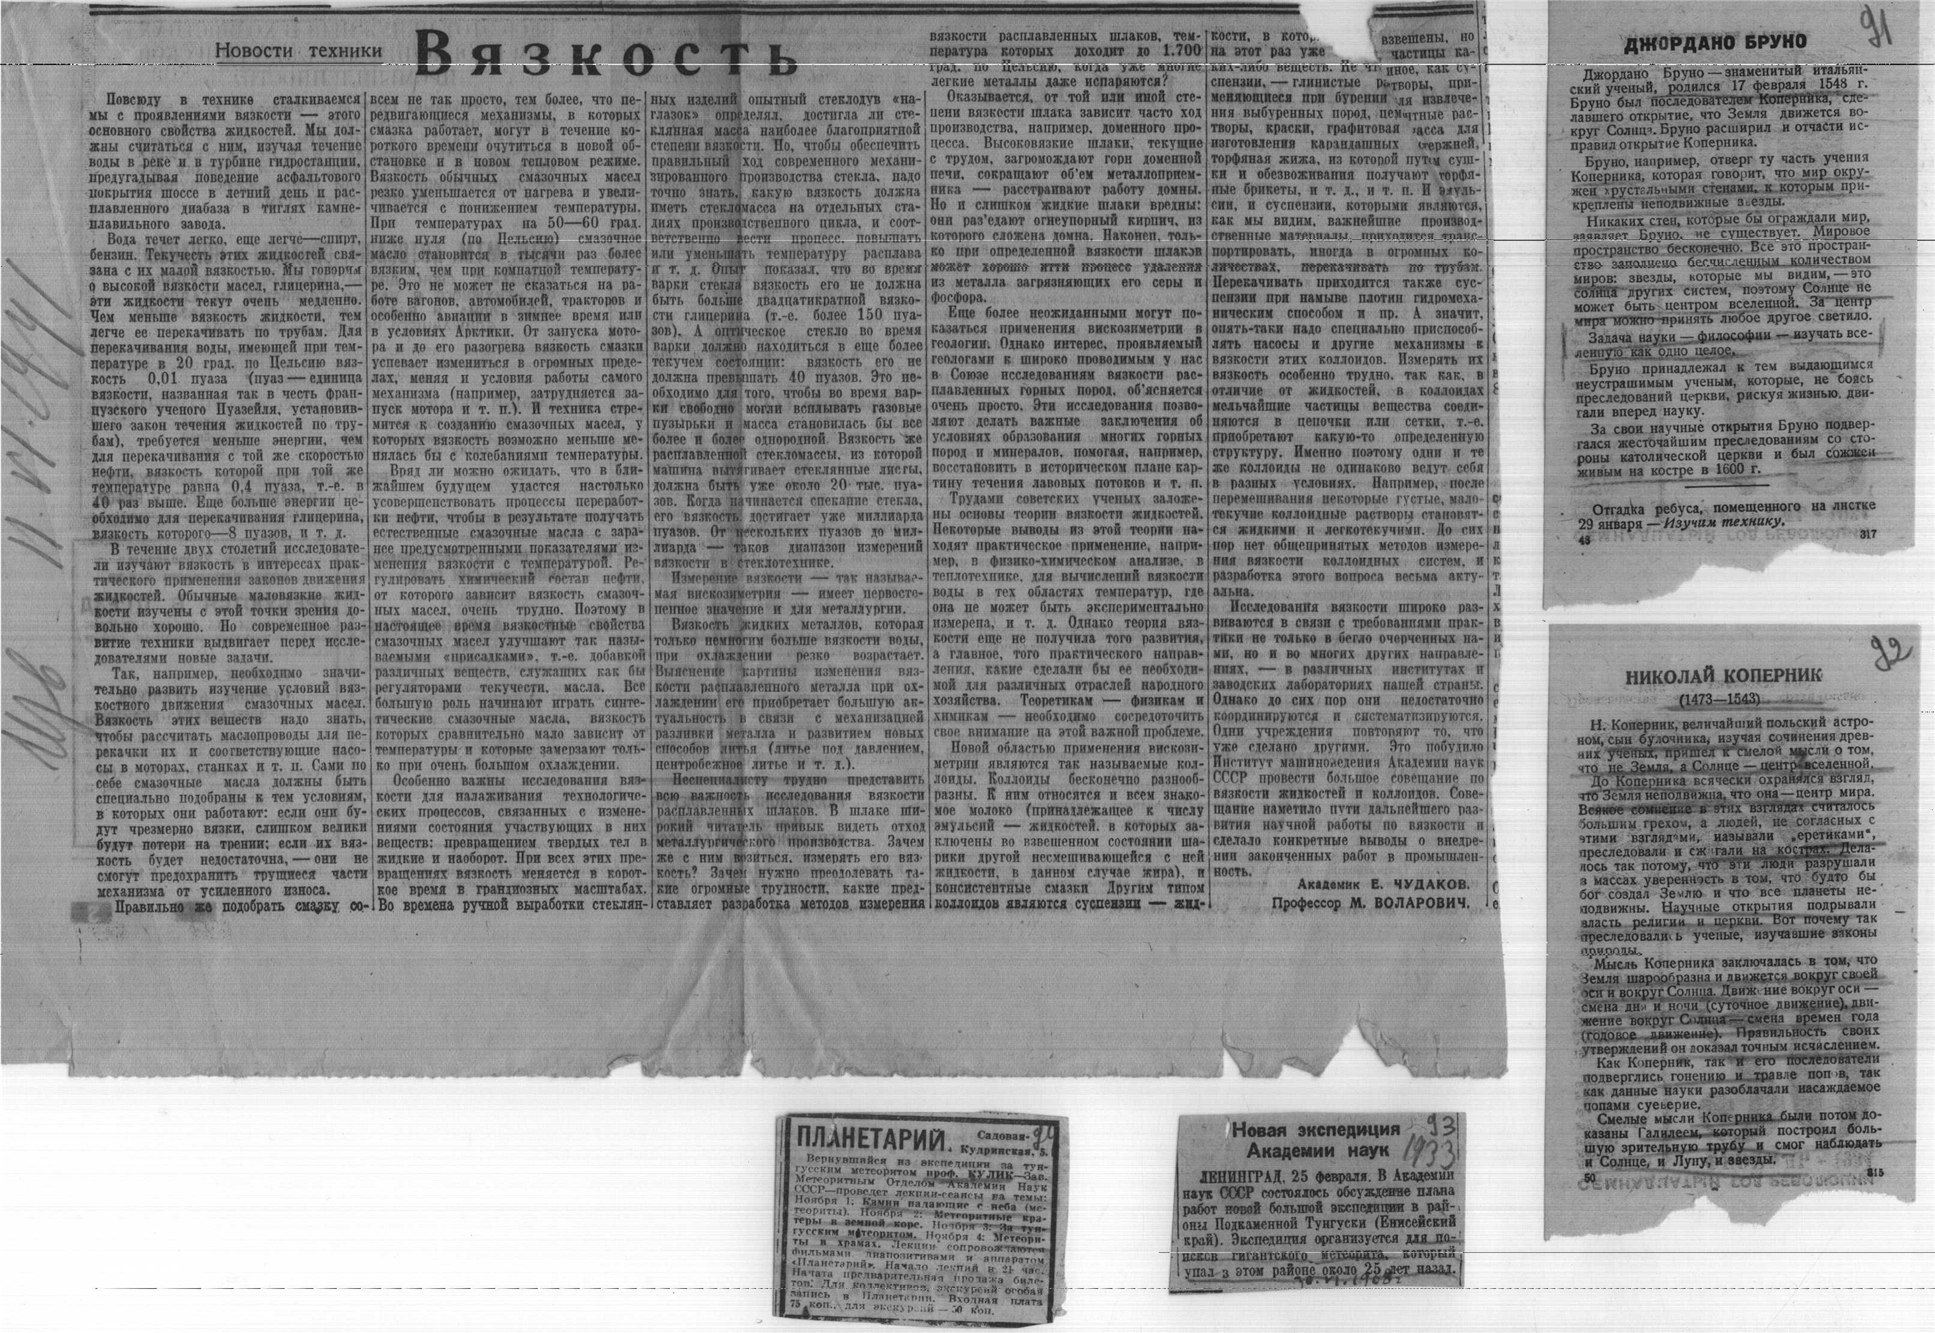 Новости техники
Вязкость
Повсюду в технике сталкиваемся
мы с проявлениями вязкости — этого
основного свойства жидкостей. Мы дол-
жны считаться с ним, изучая течение
воды в реке и в турбине гидростанции,
предугадывая поведение асфальтового
покрытия шоссе в летний день и рас-
плавленного диабаза в тиглях камне-
плавильного завода.
Вода течет легко, еще легче—спирт,
бензин. Текучесть этих жидкостей свя-
зана с их малой вязкостью. Мы говорим
о высокой вязкости масел, глицерина,—
эти жидкости текут очень медленно.
Чем меньше вязкость жидкости, тем
легче ее перекачивать по трубам. Для
перекачивания воды, имеющей при тем-
пературе в 20 град. по Цельсию вяз-
кость 0,01 пуаза (пуаз — единица
вязкости, названная так в честь фран-
цузского ученого Пуазейля, установив-
шего закон течения жидкостей по тру-
бам), требуется меньше энергии, чем
для перекачивания с той же скоростью
нефти, вязкость которой при той же
температуре равна 0,4 пуаза, т.-е. в
40 раз выше. Еще больше энергии не-
обходимо для перекачивания глицерина,
вязкость которого—8 пуазов, и т. д.
В течение двух столетий исследовате-
ли изучают вязкость в интересах прак-
тического применения законов движения
жидкостей. Обычные маловязкие жид-
кости изучены с этой точки зрения до-
вольно хорошо. Но современное раз-
витие техники выдвигает перед иссле-
дователями новые задачи.
Так, например, необходимо значи-
тельно развить изучение условий вяз-
костного движения смазочных масел.
Вязкость этих веществ надо знать,
чтобы рассчитать маслопроводы для пе-
рекачки их и соответствующие насо-
сы в моторах, станках и т. п. Сами по
себе смазочные масла должны быть
специально подобраны к тем условиям,
в которых они работают: если они бу-
дут чрезмерно вязки, слишком велики
будут потери на трении; если их вяз-
кость будет недостаточна, — они не
смогут предохранить трущиеся части
механизма от усиленного износа.
Правильно же подобрать смазку со-
всем не так просто, тем более, что пе-
редвигающиеся механизмы, в которых
смазка работает, могут в течение ко-
роткого времени очутиться в новой об-
становке и в новом тепловом режиме.
Вязкость обычных смазочных масел
резко уменьшается от нагрева и увели-
чивается с понижением температуры.
При температурах на 50—60 град.
ниже нуля (по Цельсию) смазочное
масло становится в тысячи раз более
вязким, чем при комнатной температу-
ре. Это не может не сказаться на ра-
боте вагонов, автомобилей, тракторов и
особенно авиации в зимнее время или
в условиях Арктики. От запуска мото-
ра и до его разогрева вязкость смазки
успевает измениться в огромных преде-
лах, меняя и условия работы самого
механизма (например, затрудняется за-
пуск мотора и т. п.). И техника стре-
мится к созданию смазочных масел, у
которых вязкость возможно меньше ме-
нялась бы с колебаниями температуры.
Вряд ли можно ожидать, что в бли-
жайшем будущем удастся настолько
усовершенствовать процессы переработ-
ки нефти, чтобы в результате получать
естественные смазочные масла с зара-
нее предусмотренными показателями из-
менения вязкости с температурой. Ре-
гулировать химический состав нефти,
от которого зависит вязкость смазоч-
ных масел, очень трудно. Поэтому в
настоящее время вязкостные свойства
смазочных масел улучшают так назы-
ваемыми «присадками», т.-е. добавкой
различных веществ, служащих как бы
регуляторами текучести, масла. Все
большую роль начинают играть синте-
тические смазочные масла, вязкость
которых сравнительно мало зависит от
температуры и которые замерзают толь-
ко при очень большом охлаждении.
Особенно важны исследования вяз-
кости для налаживания технологиче-
ских процессов, связанных с измене-
ниями состояния участвующих в них
веществ: превращением твердых тел в
жидкие и наоборот. При всех этих пре-
вращениях вязкость меняется в корот-
кое время в грандиозных масштабах.
Во времена ручной выработки стеклян-
ных изделий опытный стеклодув «на-
глазок» определял, достигла ли сте-
клянная масса наиболее благоприятной
степени вязкости. Но, чтобы обеспечить
правильный ход современного механи-
зированного производства стекла, надо
точно знать, какую вязкость должна
иметь стекломасса на отдельных ста-
диях производственного цикла, и соот-
ветственно вести процесс, повышать
или уменьшать температуру расплава
и т. д. Опыт показал, что во время
варки стекла вязкость его не должна
быть больше двадцатикратной вязко-
сти глицерина (т.-е. более 150 пуа-
зов). А оптическое стекло во время
варки должно находиться в еще более
текучем состоянии: вязкость его не
должна превышать 40 пуазов. Это не-
обходимо для того, чтобы во время вар-
ки свободно могли всплывать газовые
пузырьки и масса становилась бы все
более и более однородной. Вязкость же
расплавленной стекломассы, из которой
машина вытягивает стеклянные листы,
должна быть уже около 20 тыс. пуа-
зов. Когда начинается спекание стекла,
его вязкость достигает уже миллиарда
пуазов. От нескольких пуазов до мил-
лиарда — таков диапазон измерений
вязкости в стеклотехнике.
Измерение вязкости — так называе-
мая вискозиметрия — имеет первосте-
пенное значение и для металлургии.
Вязкость жидких металлов, которая
только немногим больше вязкости воды,
при охлаждении резко возрастает.
Выяснение картины изменения вяз-
кости расплавленного металла при ох-
лаждении его приобретает большую ак-
туальность в связи с механизацией
разливки металла и развитием новых
способов литья (литье под давлением,
центробежное литье и т. д.).
Неспециалисту трудно представить
всю важность исследования вязкости
расплавленных шлаков. В шлаке ши-
рокий читатель привык видеть отход
металлургического производства. Зачем
же с ним возиться, измерять его вяз-
кость? Зачем нужно преодолевать та-
кие огромные трудности, какие пред-
ставляет разработка методов измерения
вязкости расплавленных шлаков, тем-
пература которых доходит до 1.700
град. по Цельсию, когда уже многие
легкие металлы даже испаряются?
Оказывается, от той или иной сте-
пени вязкости шлака зависит часто ход
производства, например, доменного про-
цесса. Высоковязкие шлаки, текущие
с трудом, загромождают горн доменной
печи, сокращают об'ем металлоприем-
ника — расстраивают работу домны.
Но и слишком жидкие шлаки вредны:
они раз'едают огнеупорный кирпич, из
которого сложена домна. Наконец, толь-
ко при определенной вязкости шлаков
может хорошо итти процесс удаления
из металла загрязняющих его серы и
фосфора.
Еще более неожиданными могут по-
казаться применения вискозиметрии в
геологии. Однако интерес, проявляемый
геологами к широко проводимым у нас
в Союзе исследованиям вязкости рас-
плавленных горных пород, об'ясняется
очень просто. Эти исследования позво-
ляют делать важные заключения об
условиях образования многих горных
пород и минералов, помогая, например,
восстановить в историческом плане кар-
тину течения лавовых потоков и т. п.
Трудами советских ученых заложе-
ны основы теории вязкости жидкостей.
Некоторые выводы из этой теории на-
ходят практическое применение, напри-
мер, в физико-химическом анализе, в
теплотехнике, для вычислений вязкости
воды в тех областях температур, где
она не может быть экспериментально
измерена, и т. д. Однако теория вяз-
кости еще не получила того развития,
а главное, того практического направ-
ления, какие сделали бы ее необходи-
мой для различных отраслей народного
хозяйства. Теоретикам — физикам и
химикам — необходимо сосредоточить
свое внимание на этой важной проблеме.
Новой областью применения вискози-
метрии являются так называемые кол-
лоиды. Коллоиды бесконечно разнооб-
разны. К ним относятся и всем знако-
мое молоко (принадлежащее к числу
эмульсий — жидкостей, в которых за-
ключены во взвешенном состоянии ша-
рики другой несмешивающейся с ней
жидкости, в данном случае жира), и
консистентные смазки Другим типом
коллоидов являются суспензии — жид-
кости, в котор взвешены, но
на этот раз уже частицы ка-
ких-либо веществ. иное, как су-
спензии, — глинистые растворы, при-
меняющиеся при бурении для извлече-
ния выбуренных пород, цементные рас-
творы, краски, графитовая масса для
изготовления карандашных стержней,
торфяная жижа, из которой путем суш-
ки и обезвоживания получают торфя-
ные брикеты, и т. д., и т. п. И эмуль-
сии, и суспензии, которыми являются,
как мы видим, важнейшие производ-
ственные материалы, приходится транс-
портировать, иногда в огромных ко-
личествах, перекачивать по трубам.
Перекачивать приходится также сус-
пензии при намыве плотин гидромеха-
ническим способом и пр. А значит,
опять-таки надо специально приспособ-
лять насосы и другие механизмы к
вязкости этих коллоидов. Измерять их
вязкость особенно трудно, так как, в
отличие от жидкостей, в коллоидах
мельчайшие частицы вещества соеди-
няются в цепочки или сетки, т.-е.
приобретают какую-то определенную
структуру. Именно поэтому одни и те
же коллоиды не одинаково ведут себя
в разных условиях. Например, после
перемешивания некоторые густые, мало-
текучие коллоидные растворы становят-
ся жидкими и легкотекучими. До сих
пор нет общепринятых методов измере-
ния вязкости коллоидных систем, и
разработка этого вопроса весьма акту-
альна.
Исследования вязкости широко раз-
виваются в связи с требованиями прак-
тики не только в бегло очерченных на-
ми, но и во многих других направле-
ниях, — в различных институтах и
заводских лабораториях нашей страны.
Однако до сих пор они недостаточно
координируются и систематизируются.
Одни учреждения повторяют то, что
уже сделано другими. Это побудило
Институт машиноведения Академии наук
СССР провести большое совещание по
вязкости жидкостей и коллоидов. Сове-
щание наметило пути дальнейшего раз-
вития научной работы по вязкости и
сделало конкретные выводы о внедре-
нии законченных работ в промышлен-
ность.
Академик Е. ЧУДАКОВ.
Профессор М. ВОЛАРОВИЧ.
11.VI.1941
91
ДЖОРДАНО БРУНО
Джордано Бруно — знаменитый итальян-
ский ученый, родился 17 февраля 1548 г.
Бруно был последователем Коперника, сде-
лавшего открытие, что Земля движется во-
круг Солнца. Бруно расширил и отчасти ис-
правил открытие Коперника.
Бруно, например, отверг ту часть учения
Коперника, которая говорит, что мир окру-
жен хрустальными стенами, к которым при-
креплены неподвижные звезды.
Никаких стен, которые бы ограждали мир,
заявляет Бруно, не существует. Мировое
пространство бесконечно. Все это простран-
ство заполнено бесчисленным количеством
миров: звезды, которые мы видим,—это
солнца других систем, поэтому Солнце не
может быть центром вселенной. За центр
мира можно принять любое другое светило.
Задача науки — философии — изучать все-
ленную как одно целое.
Бруно принадлежал к тем выдающимся
неустрашимым ученым, которые, не боясь
преследований церкви, рискуя жизнью, дви-
гали вперед науку.
За свои научные открытия Бруно подвер-
гался жесточайшим преследованиям со сто-
роны католической церкви и был сожжен
живым на костре в 1600 г.
Отгадка ребуса, помещенного на листке
29 января — Изучим технику.
48
317
92
НИКОЛАЙ КОПЕРНИК
(1473—1543)
Н. Коперник, величайший польский астро-
ном, сын булочника, изучая сочинения древ-
них ученых, пришел к смелой мысли о том,
что не Земля, а Солнце — центр вселенной.
До Коперника всячески охранялся взгляд,
что Земля неподвижна, что она — центр мира.
Всякое сомнение в этих взглядах считалось
большим грехом, а людей, не согласных с
этими взглядами, называли „еретиками“,
преследовали и сжигали на кострах. Дела-
лось так потому, что эти люди разрушали
в массах уверенность в том, что будто бы
бог создал Землю и что все планеты не-
подвижны. Научные открытия подрывали
власть религии и церкви. Вот почему так
преследовались ученые, изучавшие законы
природы.
Мысль Коперника заключалась в том, что
Земля шарообразна и движется вокруг своей
оси и вокруг Солнца. Движение вокруг оси —
смена дня и ночи (суточное движение), дви-
жение вокруг Солнца — смена времен года
(годовое движение). Правильность своих
утверждений он доказал точным исчислением.
Как Коперник, так и его последователи
подверглись гонению и травле попов, так
как данные науки разоблачали насаждаемое
попами суеверие.
Смелые мысли Коперника были потом до-
казаны Галилеем, который построил боль-
шую зрительную трубу и смог наблюдать
и Солнце, и Луну, и звезды.
50
315
ПЛАНЕТАРИЙ.
Садовая-
Кудринская, 5.
94
Вернувшийся из экспедиции за тун-
гусским метеоритом проф. КУЛИК—Зав.
Метеоритным Отделом Академии Наук
СССР—проведет лекции-сеансы на темы:
Ноября 1: Камни падающие с неба (ме-
теориты). Ноября 2: Метеоритные кра-
теры в земной коре. Ноября 3: За тун-
гусским метеоритом. Ноября 4: Метеори-
ты в храмах. Лекции сопровождаются
фильмами, диапозитивами и аппаратом
«Планетарий». Начало лекций в 21 час.
Начата предварительная продажа биле-
тов. Для коллективов, экскурсий особая
запись в Планетарии. Входная плата
75 коп., для экскурсий — 50 коп.
Новая экспедиция
Академии наук
93
1933
ЛЕНИНГРАД, 25 февраля. В Академии
наук СССР состоялось обсуждение плана
работ новой большой экспедиции в рай-
оны Подкаменной Тунгуски (Енисейский
край). Экспедиция организуется для по-
исков гигантского метеорита, который
упал в этом районе около 25 лет назад.
30.VI.1908